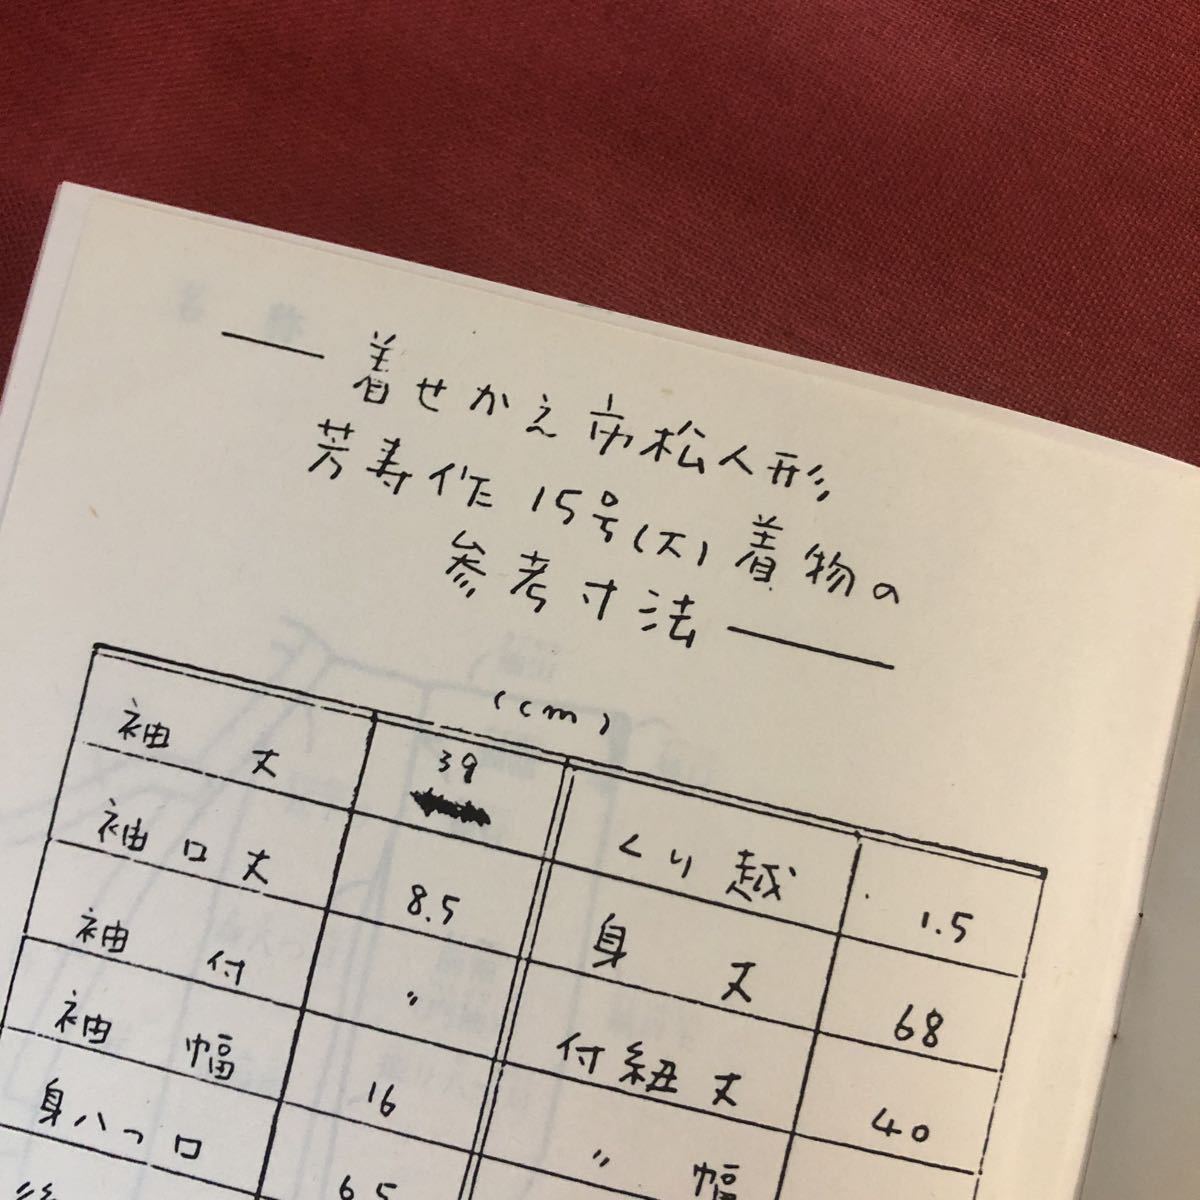 着せかえ市松人形
芳寿作 15号(大) 着物の
参考寸法
(cm)
袖丈 39 くり越 1.5
袖口丈 8.5 身丈 68
袖付 〃 付紐丈 40
袖幅 16 〃 幅
身八つ口 6.5